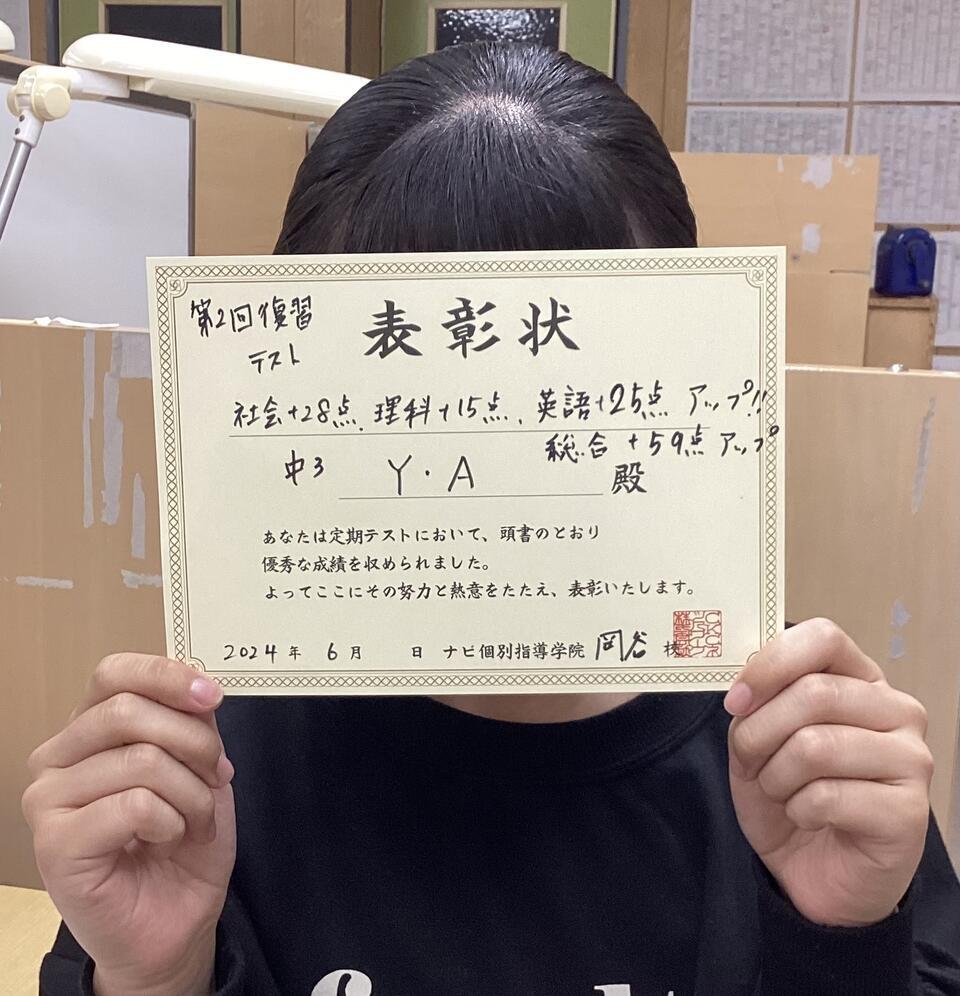 第2回復習
テスト
表彰状
社会+28点、理科+15点、英語+25点 アップ!!
総合 +59点 アップ
中3 Y・A 殿
あなたは定期テストにおいて、頭書のとおり
優秀な成績を収められました。
よってここにその努力と熱意をたたえ、表彰いたします。
2024年 6月 日 ナビ個別指導学院 岡谷 校